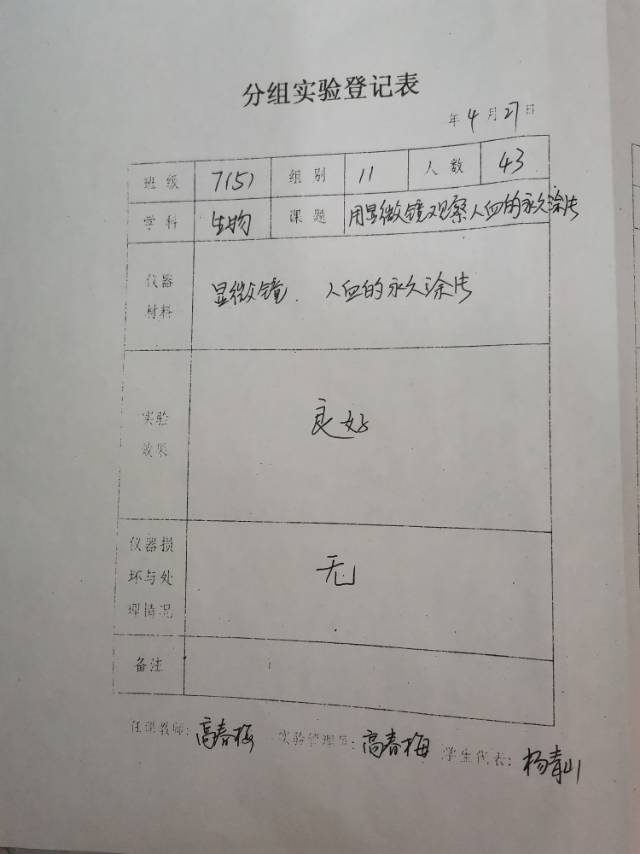 分组实验登记表
年4月27日
班级 7(5) 组别 11 人数 43
学科 生物 课题 用显微镜观察人血的永久涂片
仪器材料 显微镜、人血的永久涂片
实验效果 良好
仪器损坏与处理情况 无
备注
任课教师：高春梅 实验管理员：高春梅 学生代表：杨青山